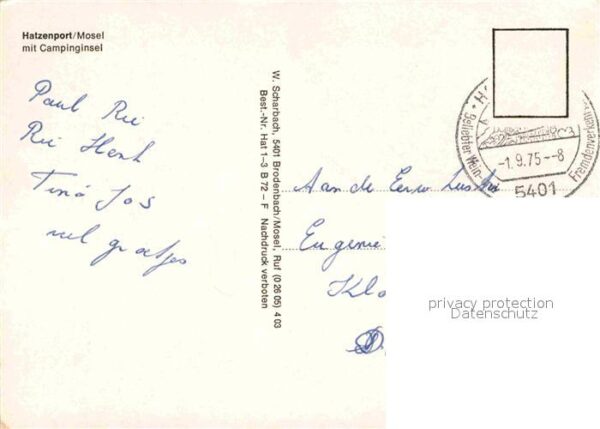 Hatzenport/Mosel
mit Campinginsel
Paul Rii
Rii Henk
Tino Jos
vul groetjes
W. Scharbach, 5401 Brodenbach/Mosel, Ruf (0 26 05) 4 03
Best.-Nr. Hat 1–3 B 72 – F Nachdruck verboten
Beliebter Wein-
Fremdenverkehr
-1.9.75--8
5401
Aan de Eerw
Eugenie
Klo
privacy protection
Datenschutz